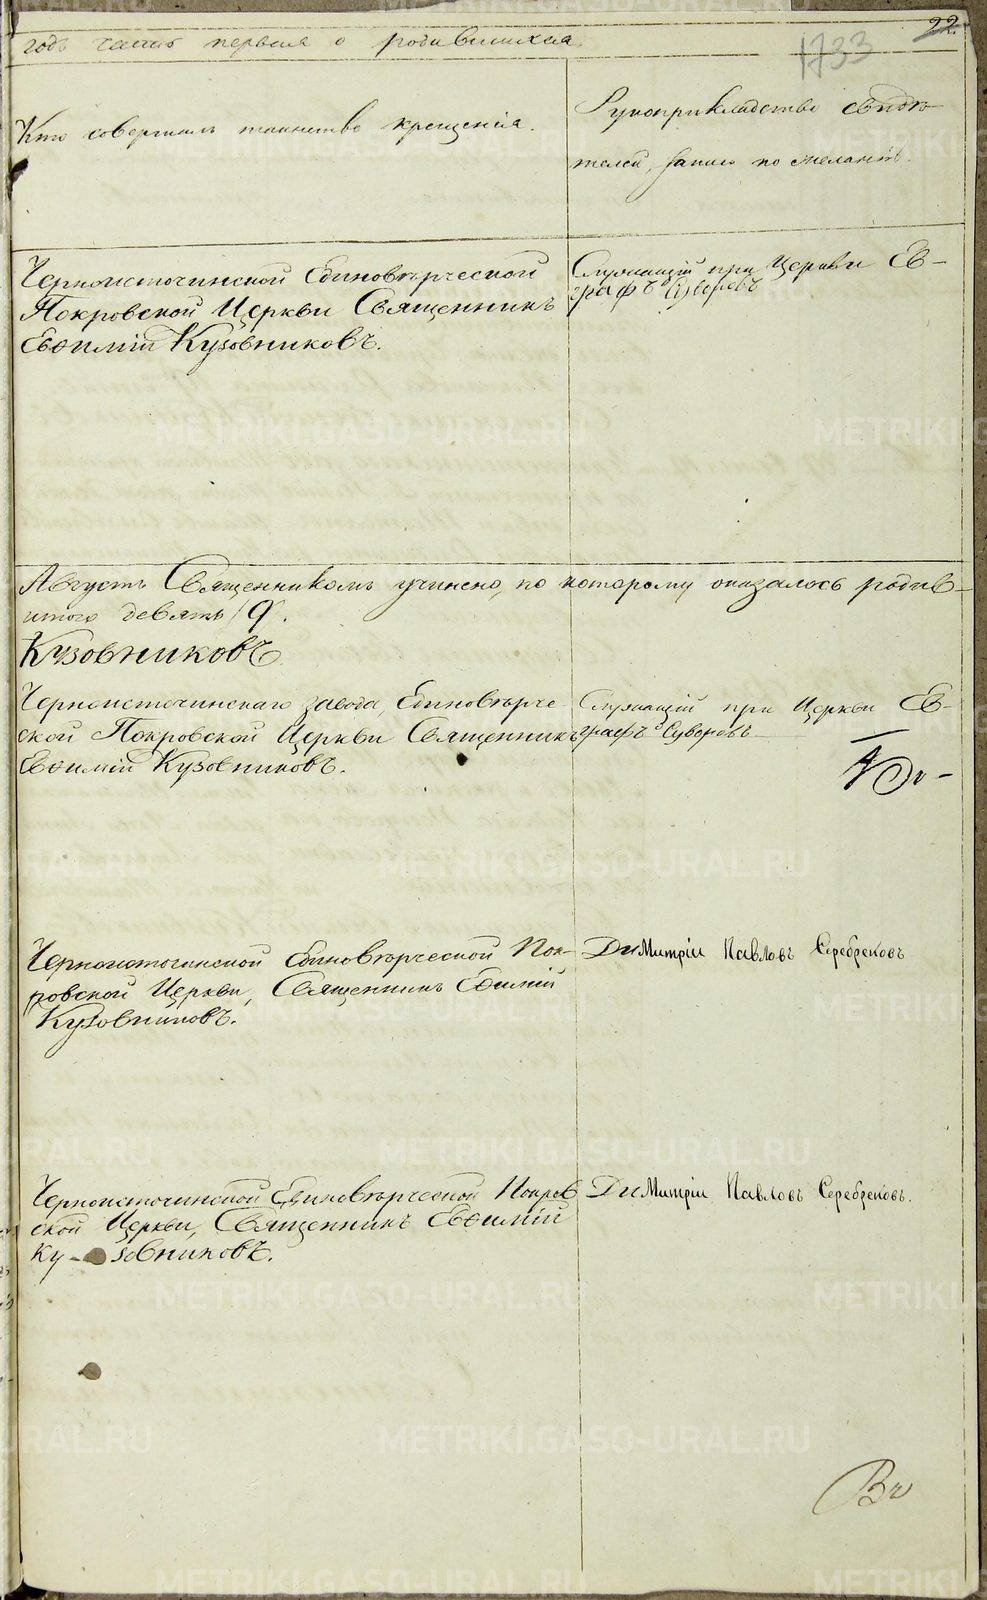 22.
годъ часть первая о родившихся.
1733
Кто совершалъ таинство крещенія.
Рукоприкладство свидѣ-
телей, записи по желанію.
Черноисточинской Единовѣрческой
Покровской Церкви Священникъ
Евѳимій Кузовниковъ.
Служащій при Церкви Ев-
графъ Суворовъ
Августъ Священникомъ учинено, по которому оказалось родив-
итого девять / 9.
Кузовниковъ
Черноисточинскаго завода, Единовѣрче-
ской Покровской Церкви Священникъ
Евѳимій Кузовниковъ.
Служащій при Церкви Ев-
графъ Суворовъ
Черноисточинской Единовѣрческой Пок-
ровской Церкви, Священникъ Евѳимій
Кузовниковъ.
Димитріи Павловъ Серебрековъ
Черноисточинской Единовѣрческой Покров
ской Церкви, Священникъ Евѳимій
Ку-зовниковъ.
Димитріи Павловъ Серебрековъ.
METRIKI.GASO-URAL.RU